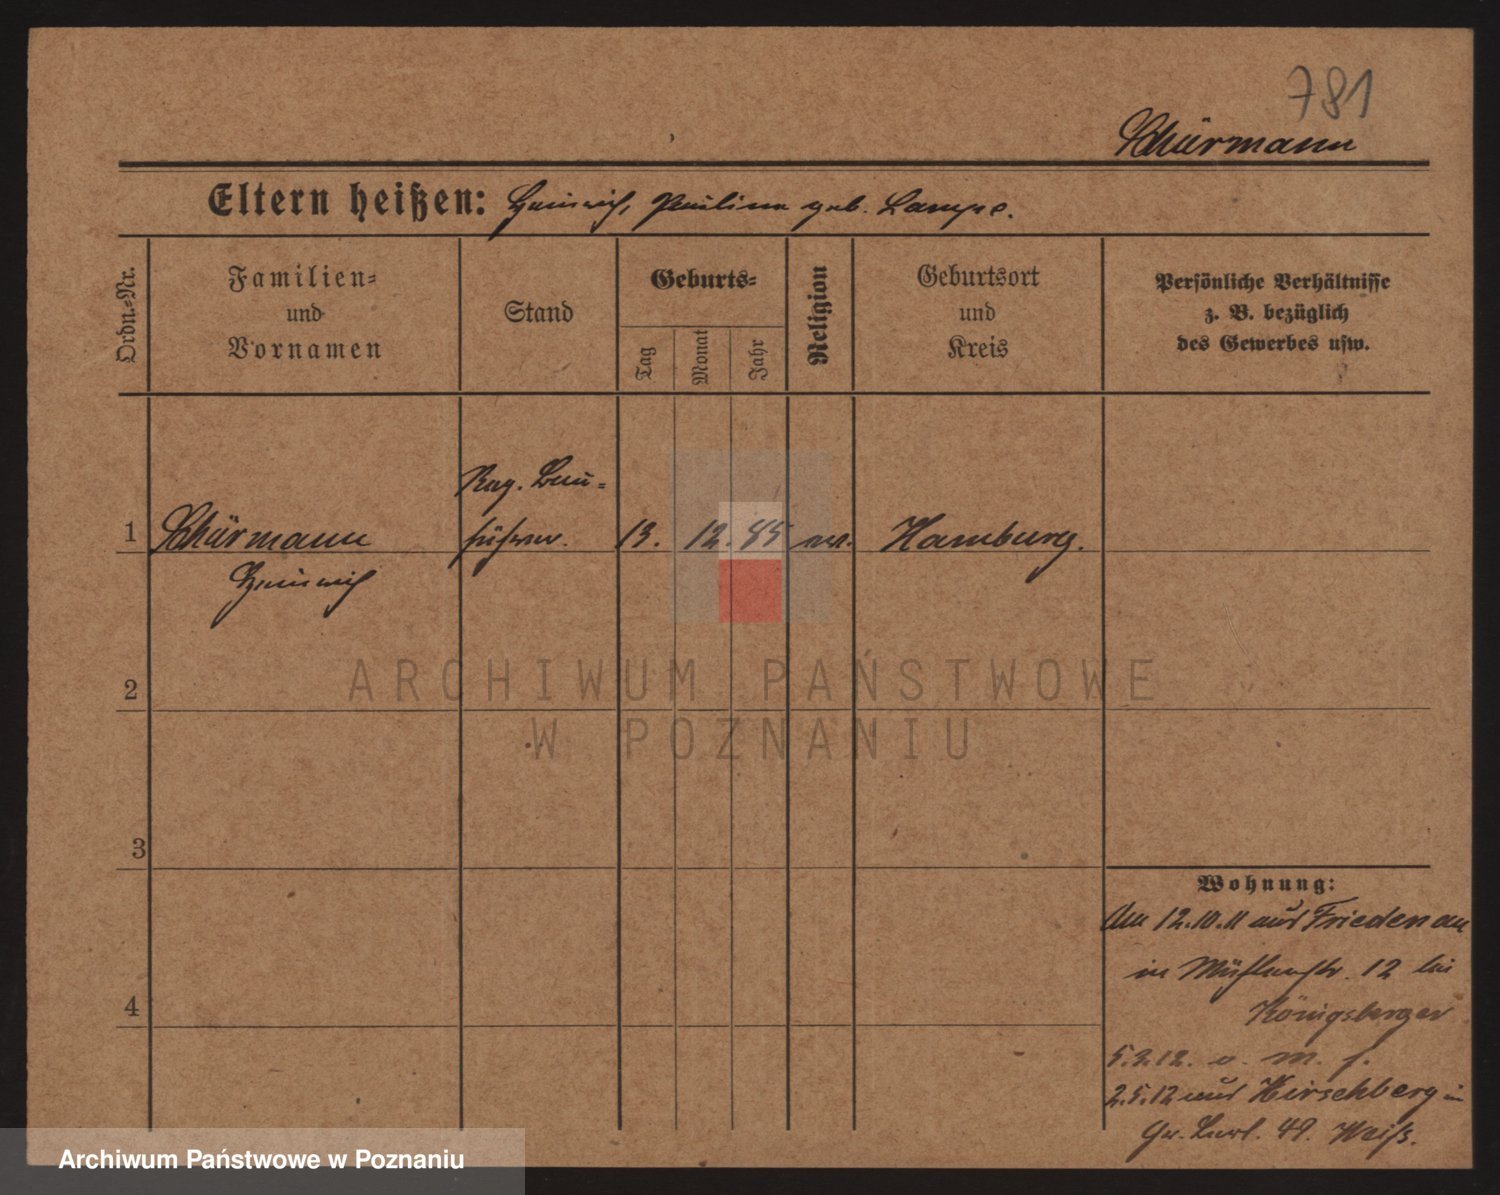 781
Schürmann
Eltern heißen: Heinrich, Pauline geb. Lampe.
Ordn.=Nr.
Familien=
und
Vornamen
Stand
Geburts=
Tag
Monat
Jahr
Religion
Geburtsort
und
Kreis
Persönliche Verhältnisse
z. B. bezüglich
des Gewerbes usw.
Reg. Bau=
1 Schürmann führer. 13. 12. 85 ev. Hamburg.
Heinrich
2
3
4
Wohnung:
Am 12.10.11 aus Friedenau
in Mühlenstr. 12 bei
Königsberger
5.2.12. v. m. f.
2.5.12 aus Hirschberg in
49.
ARCHIWUM PAŃSTWOWE
W POZNANIU
Archiwum Państwowe w Poznaniu